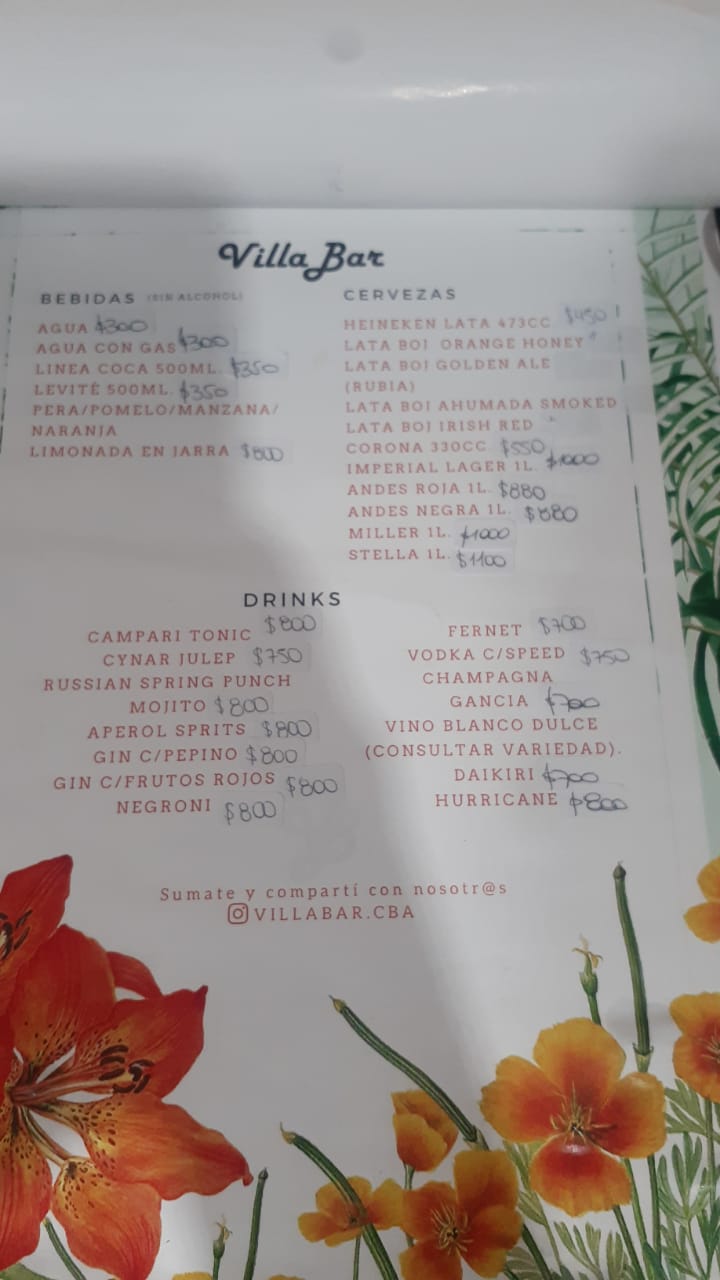 Villa Bar
BEBIDAS (SIN ALCOHOL)
AGUA $300
AGUA CON GAS $300
LINEA COCA 500ML. $350
LEVITÉ 500ML. $350
PERA/POMELO/MANZANA/
NARANJA
LIMONADA EN JARRA
CERVEZAS
HEINEKEN LATA 473CC $450
LATA BOJ ORANGE HONEY
LATA BOJ GOLDEN ALE
(RUBIA)
LATA BOJ AHUMADA SMOKED
LATA BOJ IRISH RED
CORONA 330CC $550
IMPERIAL LAGER 1L. $1000
ANDES ROJA 1L. $880
ANDES NEGRA 1L. $880
MILLER 1L. $1000
STELLA 1L. $1100
DRINKS
CAMPARI TONIC $800
CYNAR JULEP $750
RUSSIAN SPRING PUNCH
MOJITO $800
APEROL SPRITS $800
GIN C/PEPINO $800
GIN C/FRUTOS ROJOS $800
NEGRONI $800
FERNET $700
VODKA C/SPEED $750
CHAMPAGNA
GANCIA $700
VINO BLANCO DULCE
(CONSULTAR VARIEDAD).
DAIKIRI $700
HURRICANE $800
Sumate y compartí con nosotr@s
VILLABAR.CBA